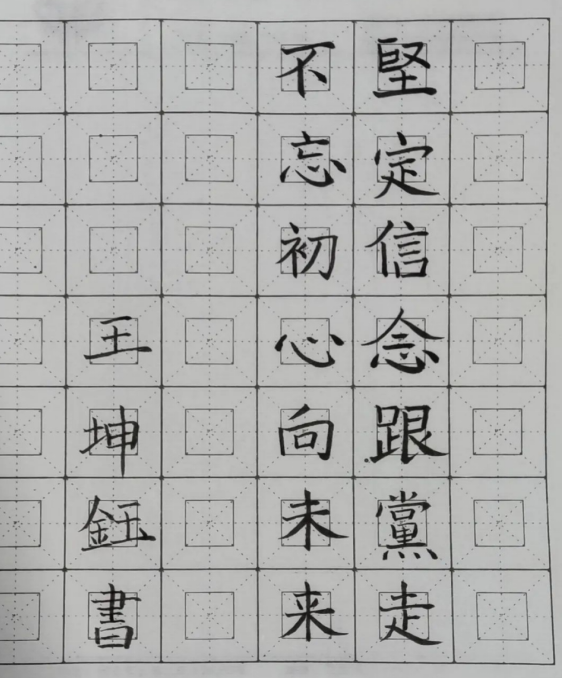 堅定信念跟黨走
不忘初心向未来
王坤鈺書